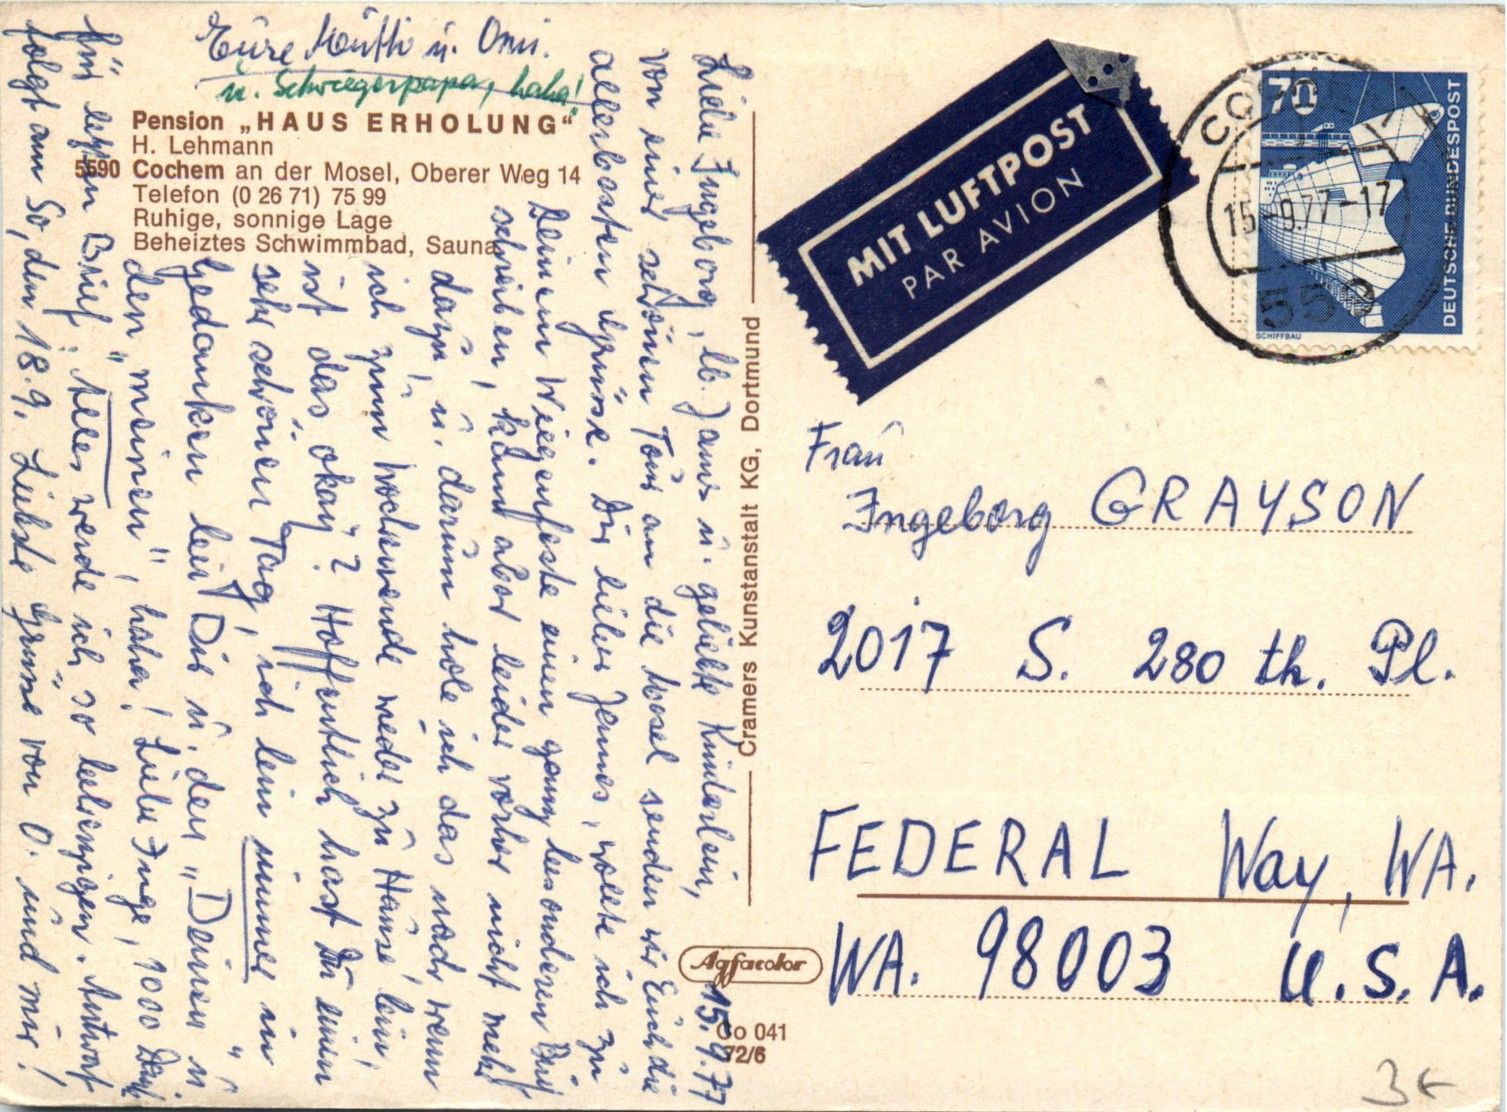 Pension „HAUS ERHOLUNG“
H. Lehmann
5590 Cochem an der Mosel, Oberer Weg 14
Telefon (0 26 71) 75 99
Ruhige, sonnige Lage
Beheiztes Schwimmbad, Sauna
15.9.77
Liebe Ingeborg, lb. James u. geliebte Kinderlein,
von einer schönen Tour am die Mosel senden wir Euch die
allerbesten Grüsse. Dir lieber James, wollte ich zu
Deinem Wiegenfeste einen ganz besonderen Brief
schreiben, kam aber leider vorher nicht mehr
dazu, u. darum hole ich das nach, wenn
ich zum Wochenende wieder zu Hause bin,
ist das okay? Hoffentlich hast Du einen
sehr schönen Tag, ich bin immer in
Gedanken bei Dir u. den „Deinen“ u
den „meinen“, haha! Liebe Inge, 1000 Dank
für letzten Brief. Alles werde ich so beherzigen. Antwort
folgt am So, den 18.9. Liebste Grüsse von O. und mir!
Eure Mutti u. Omi.
u. Schwiegerpapa, haha!
Cramers Kunstanstalt KG, Dortmund
Agfacolor
Co 041
72/6
MIT LUFTPOST
PAR AVION
70
DEUTSCHE BUNDESPOST
SCHIFFBAU
15.-9.77-17
559
Frau
Ingeborg GRAYSON
2017 S. 280 th. Pl.
FEDERAL Way, WA.
WA. 98003 U.S.A.
3€